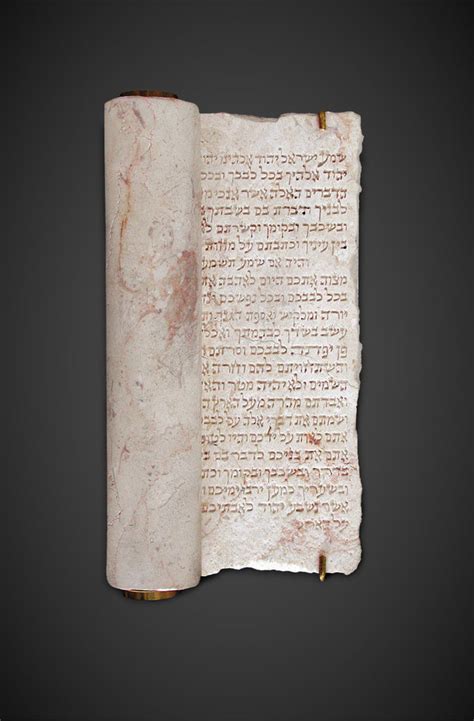 שמע ישראל יהוה אלהינו יהו
יהוה אלהיך בכל לבבך ובכל
הדברים האלה אשר אנכי מ
לבניך ודברת בם בשבתך
ובשכבך ובקומך וקשרתם
בין עיניך וכתבתם על מזוז
והיה אם שמע תשמע
מצוה אתכם היום לאהבה את
בכל לבבכם ובכל נפשכם
יורה ומלקוש ואספת דגנך
עשב בשדך לבהמתך
פן יפתה לבבכם וסרתם
והשתחויתם להם וחרה
השמים ולא יהיה מטר וה
ואבדתם מהרה מעל הארץ
ושמתם את דברי אלה על
אתם לאות על ידכם והיו ל
אתם את בניכם לדבר בם
בדרך ובשכבך ובקומך וכת
ובשעריך למען ירבו ימיכם
אשר נשבע יהוה לאבתיכם
על הארץ